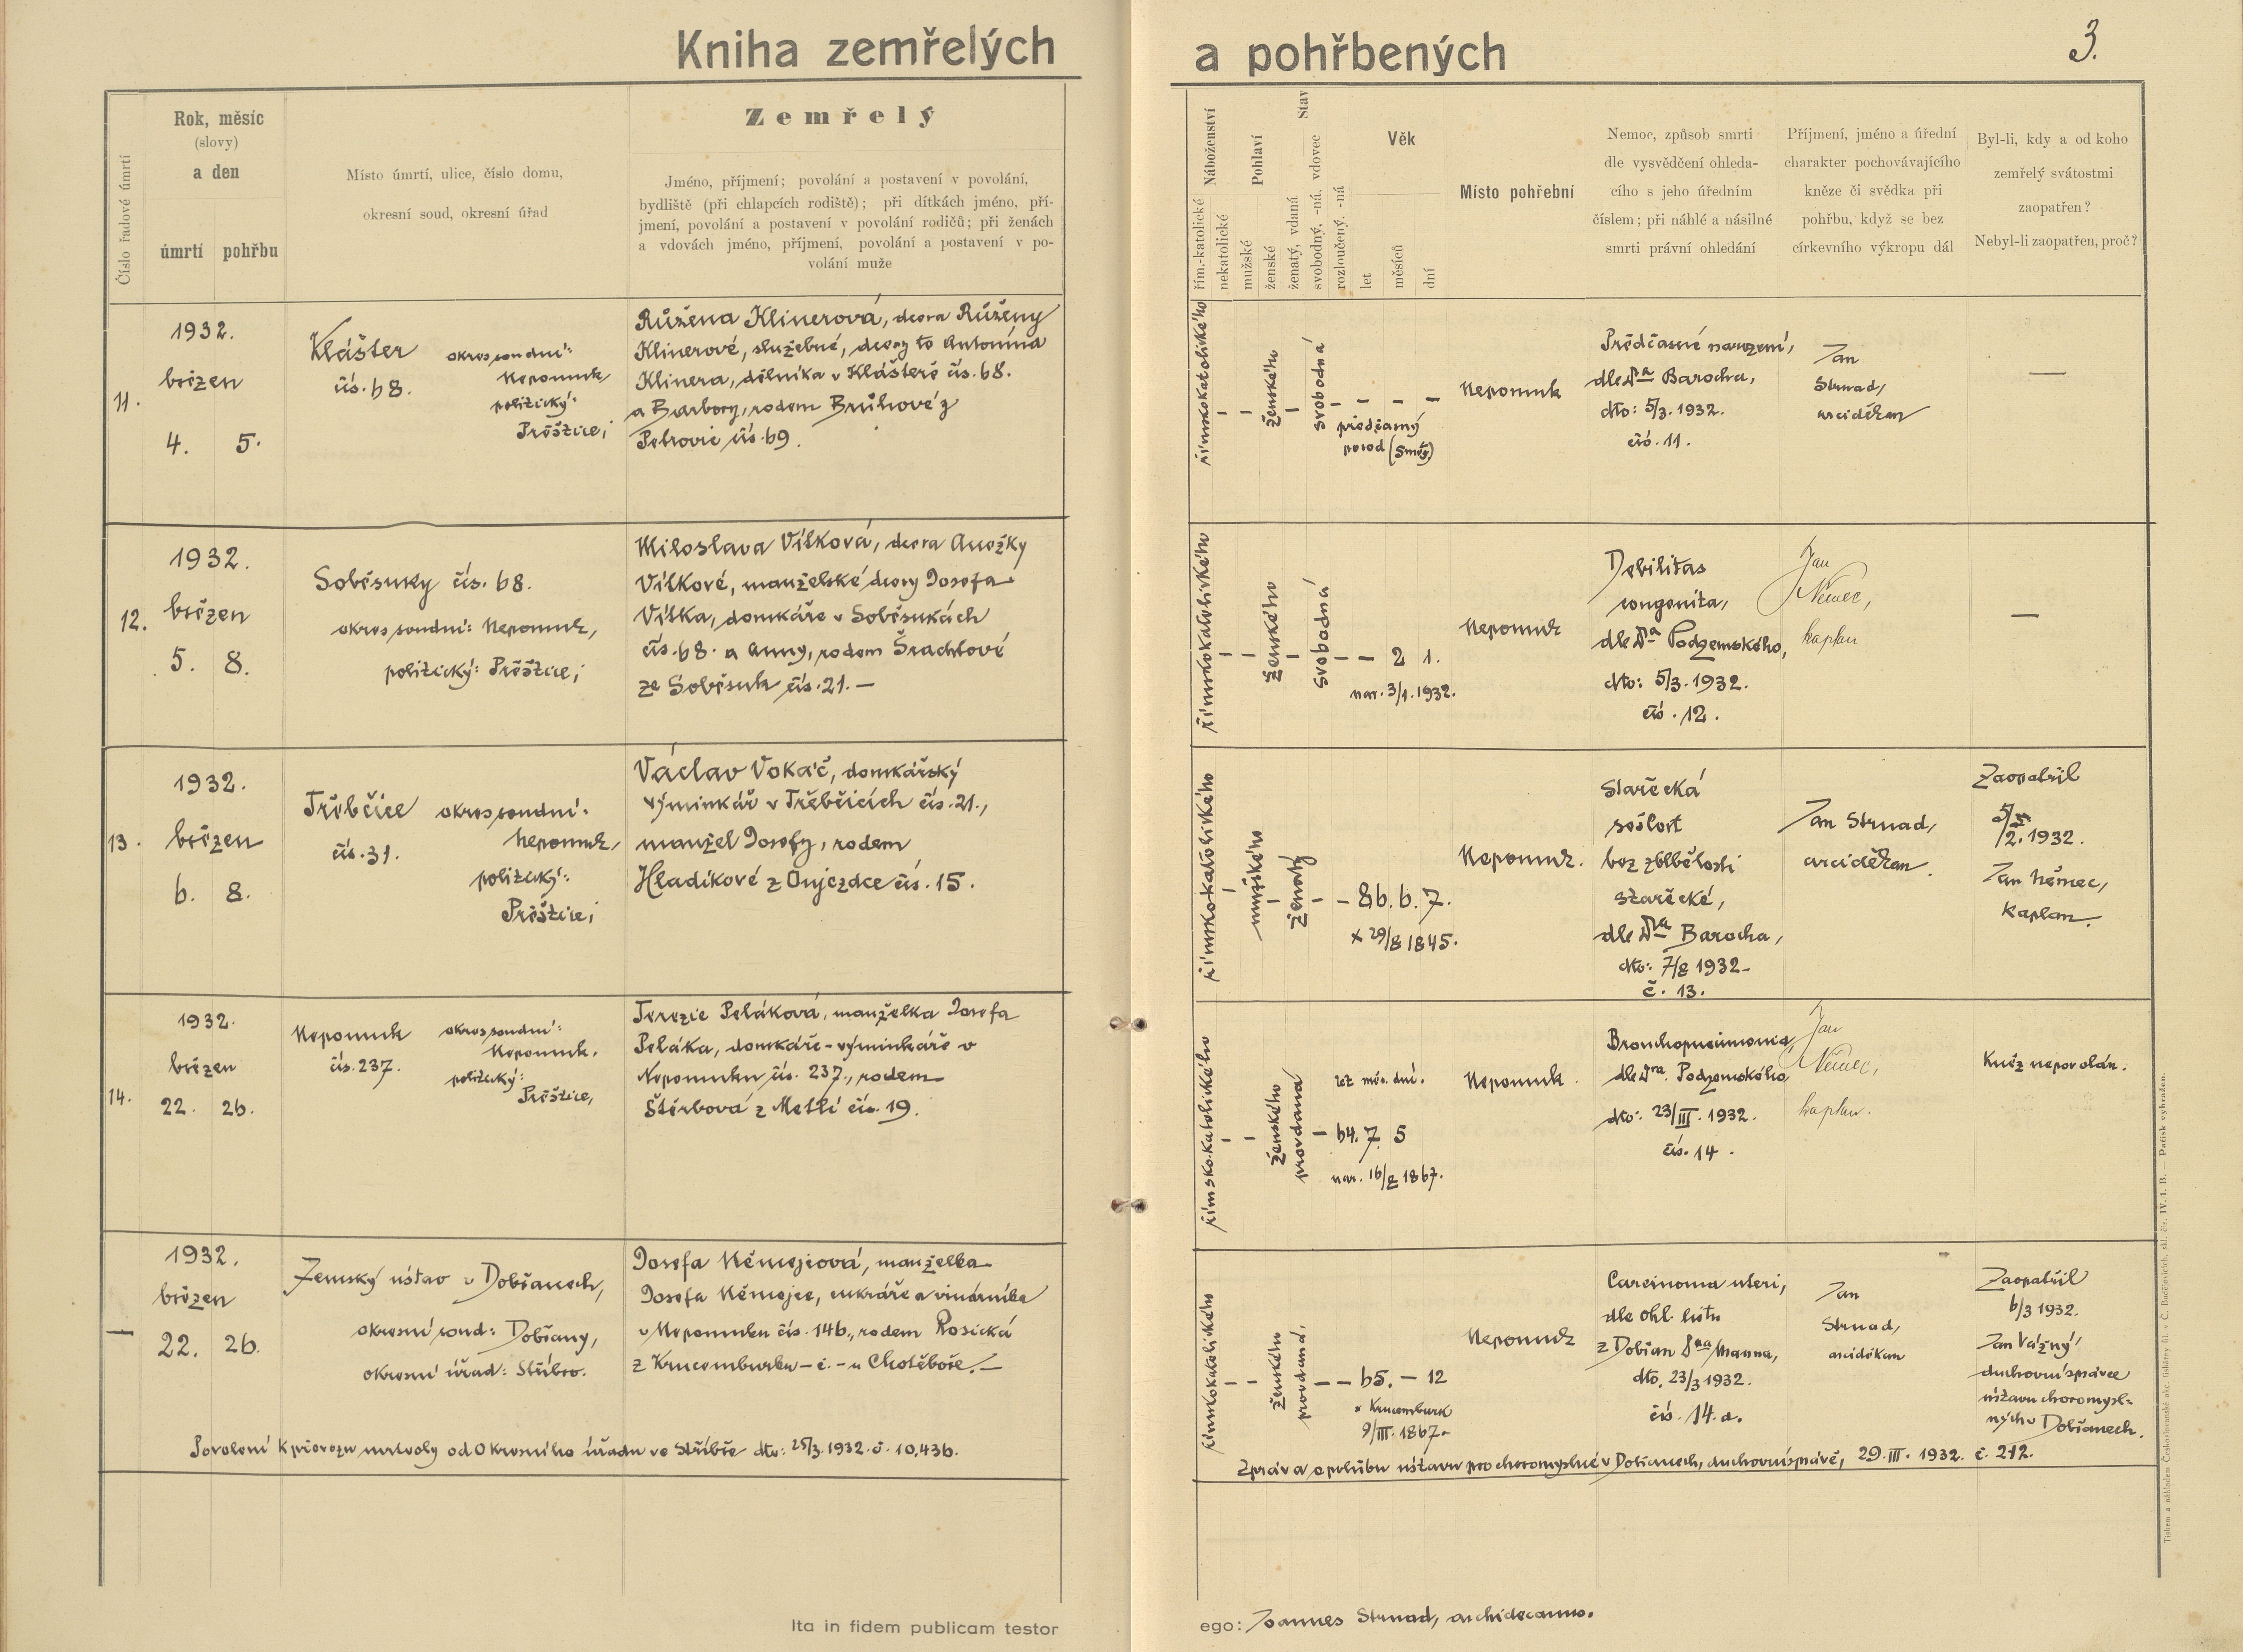 Kniha zemřelých a pohřbených
3.
Číslo řadové úmrtí
Rok, měsíc
(slovy)
a den
úmrtí pohřbu
Místo úmrtí, ulice, číslo domu,
okresní soud, okresní úřad
Zemřelý
Jméno, příjmení; povolání a postavení v povolání,
bydliště (při chlapcích rodiště); při dítkách jméno, pří-
jmení, povolání a postavení v povolání rodičů; při ženách
a vdovách jméno, příjmení, povolání a postavení v po-
volání muže
Náboženství
řím.-katolické
nekatolické
Pohlaví
mužské
ženské
Stav
ženatý, vdaná
svobodný, -ná, vdovec
rozloučený, -ná
Věk
let
měsíců
dní
Místo pohřební
Nemoc, způsob smrti
dle vysvědčení ohleda-
cího s jeho úředním
číslem; při náhlé a násilné
smrti právní ohledání
Příjmení, jméno a úřední
charakter pochovávajícího
kněze či svědka při
pohřbu, když se bez
církevního výkropu dál
Byl-li, kdy a od koho
zemřelý svátostmi
zaopatřen?
Nebyl-li zaopatřen, proč?
11.
1932.
březen
4. 5.
Klášter
čís. 68.
okres soudní:
Nepomuk
politický:
Přeštice;
Růžena Klinerová, dcera Růženy
Klinerové, služebné, dcery to Antonína
Klinera, dělníka v Klášteře čís. 68.
a Barbory, rodem Brůhové z
Petrovic čís. 69.
římskokatolického
– –
ženského
–
svobodná
– – – –
předčasný
porod
Nepomuk
Předčasné narození,
dle Dra Barocha,
dto: 5/3. 1932.
čís. 11.
Jan
Strnad,
arciděkan
—
12.
1932.
březen
5. 8.
Soběsuky čís. 68.
okres soudní: Nepomuk,
politický: Přeštice;
Miloslava Vítková, dcera Anežky
Vítkové, manželské dcery Josefa
Vítka, domkáře v Soběsukách
čís. 68. a Anny, rodem Šrachtové
ze Soběsuk čís. 21. —
římskokatolického
– –
ženského
–
svobodná
– – 2 1.
nar. 3/1. 1932.
Nepomuk
Debilitas
congenita,
dle Dra Podzemského,
dto: 5/3. 1932.
čís. 12.
Jan
Němec,
kaplan
—
13.
1932.
březen
6. 8.
Třebčice
čís. 31.
okres soudní:
Nepomuk,
politický:
Přeštice;
Václav Vokáč, domkářský
výminkář v Třebčicích čís. 21.,
manžel Josefy, rodem
Hladíkové z Oujezdce čís. 15.
římskokatolického
–
mužského
–
ženatý
– – 86. 6. 7.
x 29/8 1845.
Nepomuk.
Stařecká
sešlost
bez zblbělosti
stařecké,
dle Dra Barocha,
dto: 7/8 1932–
č. 13.
Jan Strnad,
arciděkan.
Zaopatřil
/2. 1932.
Jan Němec,
kaplan
14.
1932.
březen
22. 26.
Nepomuk
čís. 237.
okres soudní:
Nepomuk.
politický:
Přeštice,
Terezie Peláková, manželka Josefa
Peláka, domkáře-výminkáře v
Nepomuku čís. 237., rodem
Štěrbová z Metlí čís. 19.
římsko-katolického
– –
ženského
provdaná
let měs. dní.
– 64. 7. 5
nar. 16/8 1867.
Nepomuk.
Bronchopneumonia,
dle Dra. Podzemského,
dto: 23/III. 1932.
čís. 14.
Jan
Němec,
kaplan.
Kněz nepovolán.
—
1932.
březen
22. 26.
Zemský ústav v Dobřanech,
okresní soud: Dobřany,
okresní úřad: Stříbro.
Josefa Němejcová, manželka
Josefa Němejce, cukráře a vinárníka
v Nepomuku čís. 146., rodem Rosická
z Krucemburku – č. – u Chotěboře. —
římskokatolického
– –
ženského
provdaná,
– – 65. – 12
* Krucemburk
9/III. 1867.
Nepomuk
Carcinoma uteri,
dle ohl. listu
z Dobřan Dra Manna,
dto. 23/3 1932.
čís. 14. a.
Jan
Strnad,
arciděkan
Zaopatřil
6/3 1932.
Jan Vážný
duchovní správce
ústavu choromysl-
ných v Dobřanech.
Povolení k převozu mrtvoly od Okresního úřadu ve Stříbře dto: 25/3. 1932. č. 10,436.
Zpráva o pohřbu ústavu pro choromyslné v Dobřanech, duchovní správě, 29. III. 1932. č. 212.
Ita in fidem publicam testor
ego: Joannes Strnad, archidecanus.
Tiskem a nákladem Českoslovanské akc. tiskárny fil. v Č. Budějovicích, skl. čís. IV. 1. B. — Patisk vyhražen.